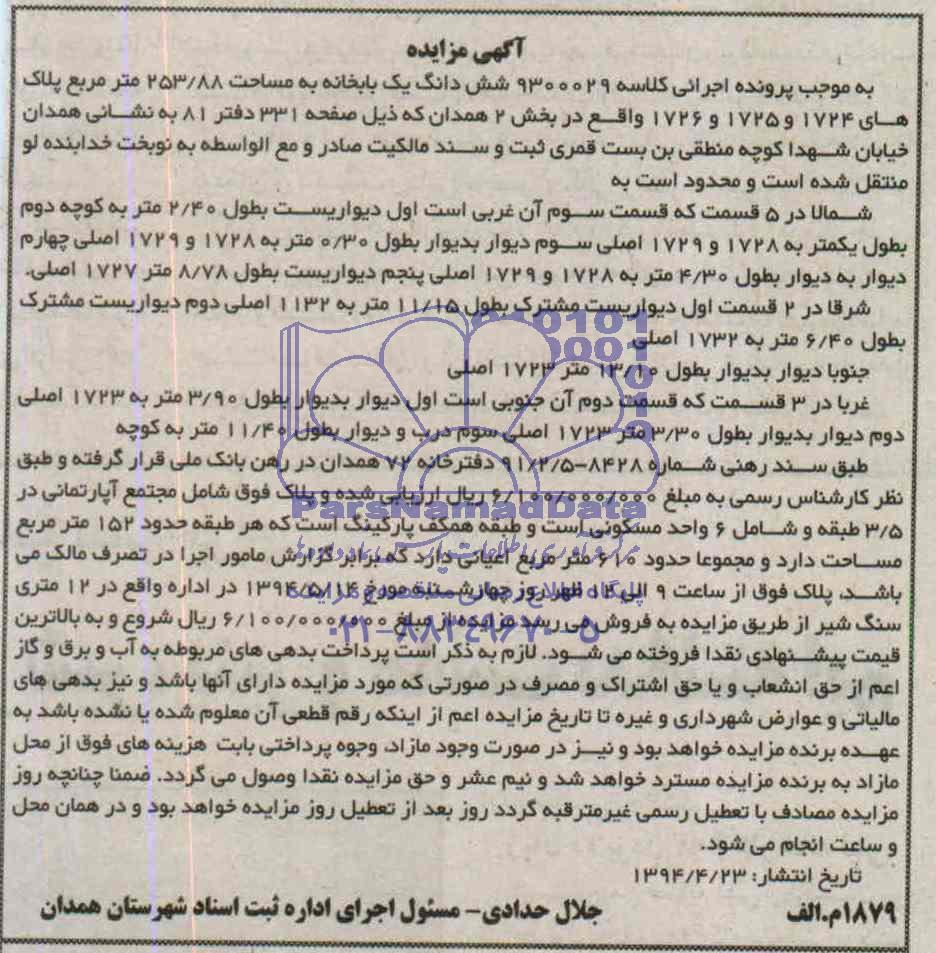 آگهی مزایده
به موجب پرونده اجرائی کلاسه ۹۳۰۰۰۲۹ شش دانگ یک بابخانه به مساحت ۲۵۳/۸۸ متر مربع پلاک
های ۱۷۲۴ و ۱۷۲۵ و ۱۷۲۶ واقع در بخش ۲ همدان که ذیل صفحه ۳۳۱ دفتر ۸۱ به نشانی همدان
خیابان شهدا کوچه منطقی بن بست قمری ثبت و سند مالکیت صادر و مع الواسطه به نوبخت خدابنده لو
منتقل شده است و محدود است به
شمالا در ۵ قسمت که قسمت سوم آن غربی است اول دیواریست بطول ۲/۴۰ متر به کوچه دوم
بطول یکمتر به ۱۷۲۸ و ۱۷۲۹ اصلی سوم دیوار بدیوار بطول ۰/۳۰ متر به ۱۷۲۸ و ۱۷۲۹ اصلی چهارم
دیوار به دیوار بطول ۴/۳۰ متر به ۱۷۲۸ و ۱۷۲۹ اصلی پنجم دیواریست بطول ۸/۷۸ متر ۱۷۲۷ اصلی.
شرقا در ۲ قسمت اول دیواریست مشترک بطول ۱۱/۱۵ متر به ۱۱۳۲ اصلی دوم دیواریست مشترک
بطول ۶/۴۰ متر به ۱۷۳۲ اصلی
جنوبا دیوار بدیوار بطول ۱۳/۱۰ متر ۱۷۲۳ اصلی
غربا در ۳ قسمت که قسمت دوم آن جنوبی است اول دیوار بدیوار بطول ۳/۹۰ متر به ۱۷۲۳ اصلی
دوم دیوار بدیوار بطول ۳/۳۰ متر ۱۷۲۳ اصلی سوم درب و دیوار بطول ۱۱/۴۰ متر به کوچه
طبق سند رهنی شماره ۸۴۲۸-۹۱/۲/۵ دفترخانه ۷۲ همدان در رهن بانک ملی قرار گرفته و طبق
نظر کارشناس رسمی به مبلغ ۶/۱۰۰/۰۰۰/۰۰۰ ریال ارزیابی شده و پلاک فوق شامل مجتمع آپارتمانی در
۳/۵ طبقه و شامل ۶ واحد مسکونی است و طبقه همکف پارکینگ است که هر طبقه حدود ۱۵۲ متر مربع
مساحت دارد و مجموعا حدود ۶۱۰ متر مربع اعیانی دارد که برابر گزارش مامور اجرا در تصرف مالک می
باشد، پلاک فوق از ساعت ۹ الی ۱۲ ظهر روز چهارشنبه مورخ ۱۳۹۴/۵/۱۴ در اداره واقع در ۱۲ متری
سنگ شیر از طریق مزایده به فروش می رسد مزایده از مبلغ ۶/۱۰۰/۰۰۰/۰۰۰ ریال شروع و به بالاترین
قیمت پیشنهادی نقدا فروخته می شود. لازم به ذکر است پرداخت بدهی های مربوطه به آب و برق و گاز
اعم از حق انشعاب و یا حق اشتراک و مصرف در صورتی که مورد مزایده دارای آنها باشد و نیز بدهی های
مالیاتی و عوارض شهرداری و غیره تا تاریخ مزایده اعم از اینکه رقم قطعی آن معلوم شده یا نشده باشد به
عهده برنده مزایده خواهد بود و نیز در صورت وجود مازاد، وجوه پرداختی بابت هزینه های فوق از محل
مازاد به برنده مزایده مسترد خواهد شد و نیم عشر و حق مزایده نقدا وصول می گردد. ضمنا چنانچه روز
مزایده مصادف با تعطیل رسمی غیرمترقبه گردد روز بعد از تعطیل روز مزایده خواهد بود و در همان محل
و ساعت انجام می شود.
تاریخ انتشار: ۱۳۹۴/۴/۲۳
۱۸۷۹م.الف
جلال حدادی- مسئول اجرای اداره ثبت اسناد شهرستان همدان
ParsNamadData
۰۲۱-۸۸۳۴۹۶۷۰-۵